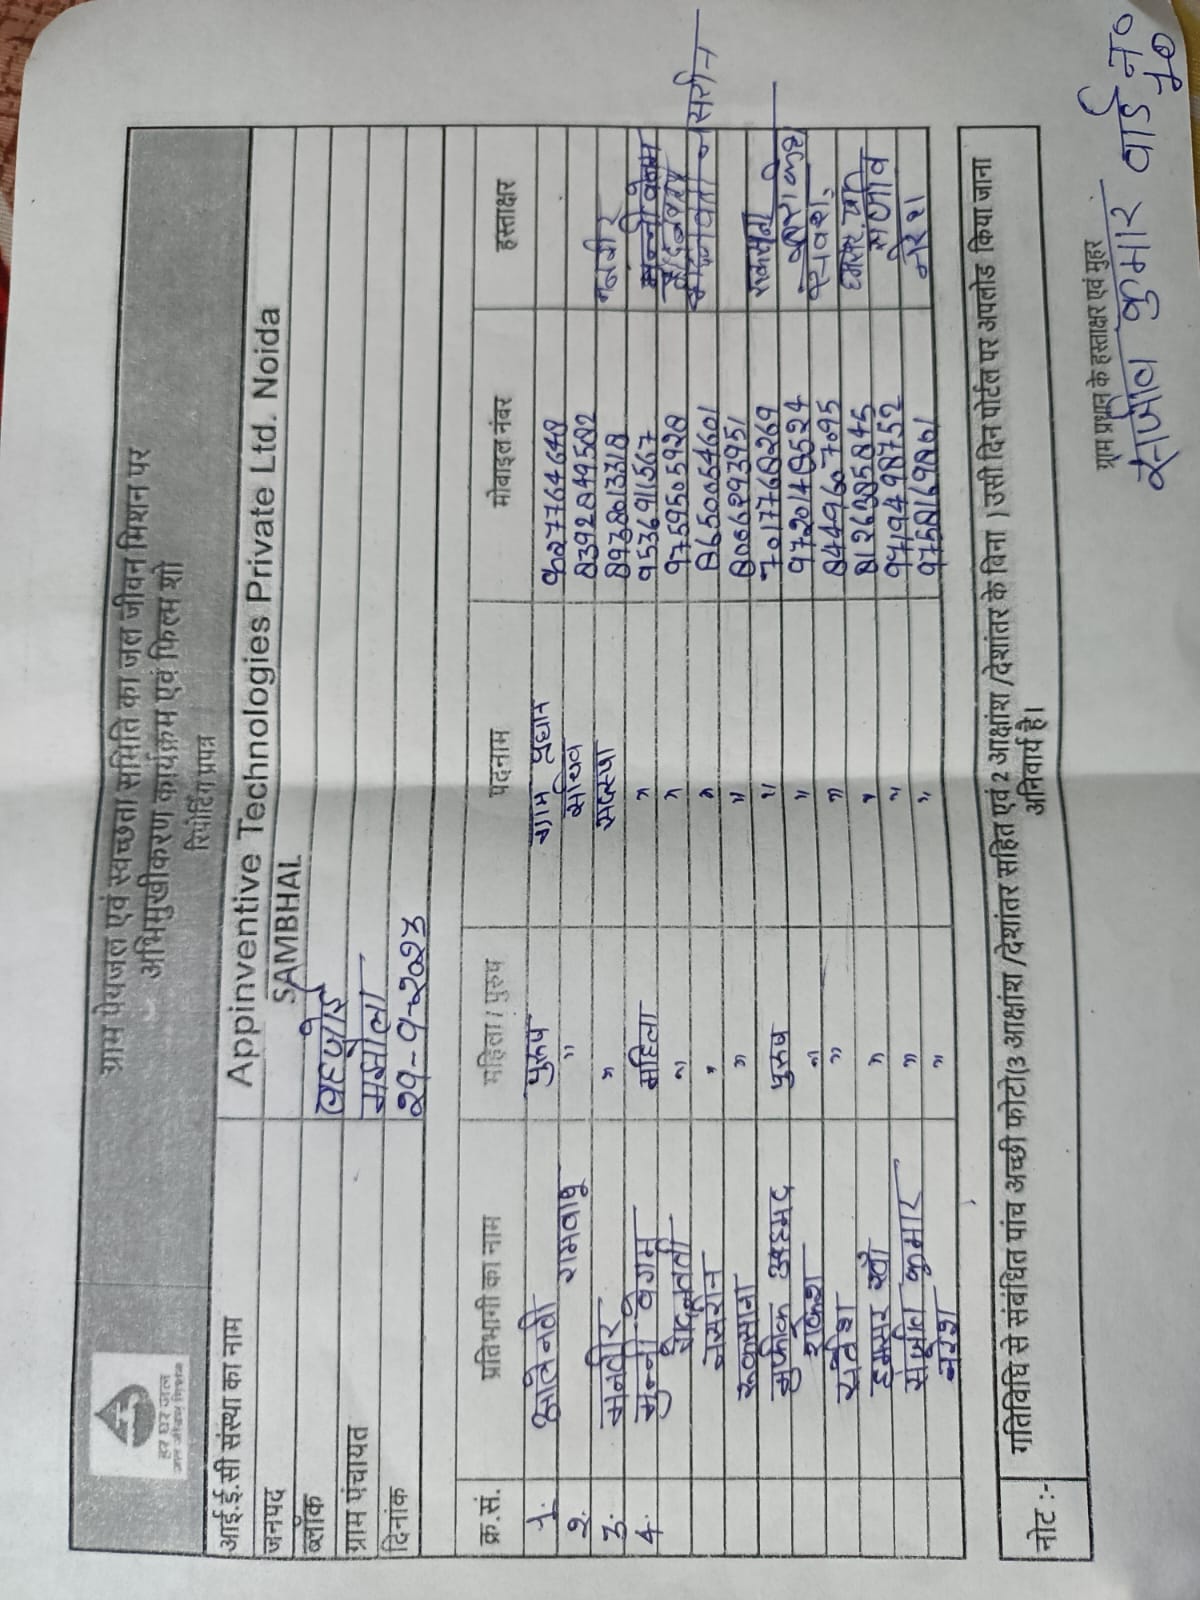 ग्राम पेयजल एवं स्वच्छता समिति का जल जीवन मिशन पर
अभिमुखीकरण कार्यक्रम एवं फिल्म शो
रिपोर्टिंग प्रपत्र
हर घर जल
जल जीवन मिशन
आई.ई.सी संस्था का नाम Appinventive Technologies Private Ltd. Noida
जनपद SAMBHAL
ब्लॉक बहजोई
ग्राम पंचायत मझोला
दिनांक २१-९-२०२३
क्र.सं. प्रतिभागी का नाम महिला / पुरुष पदनाम मोबाइल नंबर हस्ताक्षर
1. आलेनवी पुरुष ग्राम प्रधान
2. रामबाबु " सचिव 8392849582
3. मनवीर " सदस्या 8978013318
4. मुन्नी वेगम महिला " 9536911567 मुन्नी वेगम
" " 9759505928
नसरीन " " 8650054601 नसरीन
रुकसाना " " 8006293951
मुफीक अहमद पुरुष " 7017768269
राकेश " " 9720148524
सर्वेश " " 8449607095
हमसर खाँ " " 8126385845
सजीव कुमार " " 9719498752 सजीव
नरेश " " 9758169801 नरेश
नोट :- गतिविधि से संबंधित पांच अच्छी फोटो(3 आक्षांश /देशांतर सहित एवं 2 आक्षांश /देशांतर के बिना ) उसी दिन पोर्टल पर अपलोड किया जाना
अनिवार्य है।
ग्राम प्रधान के हस्ताक्षर एवं मुहर
सजीव कुमार वार्ड न० 10